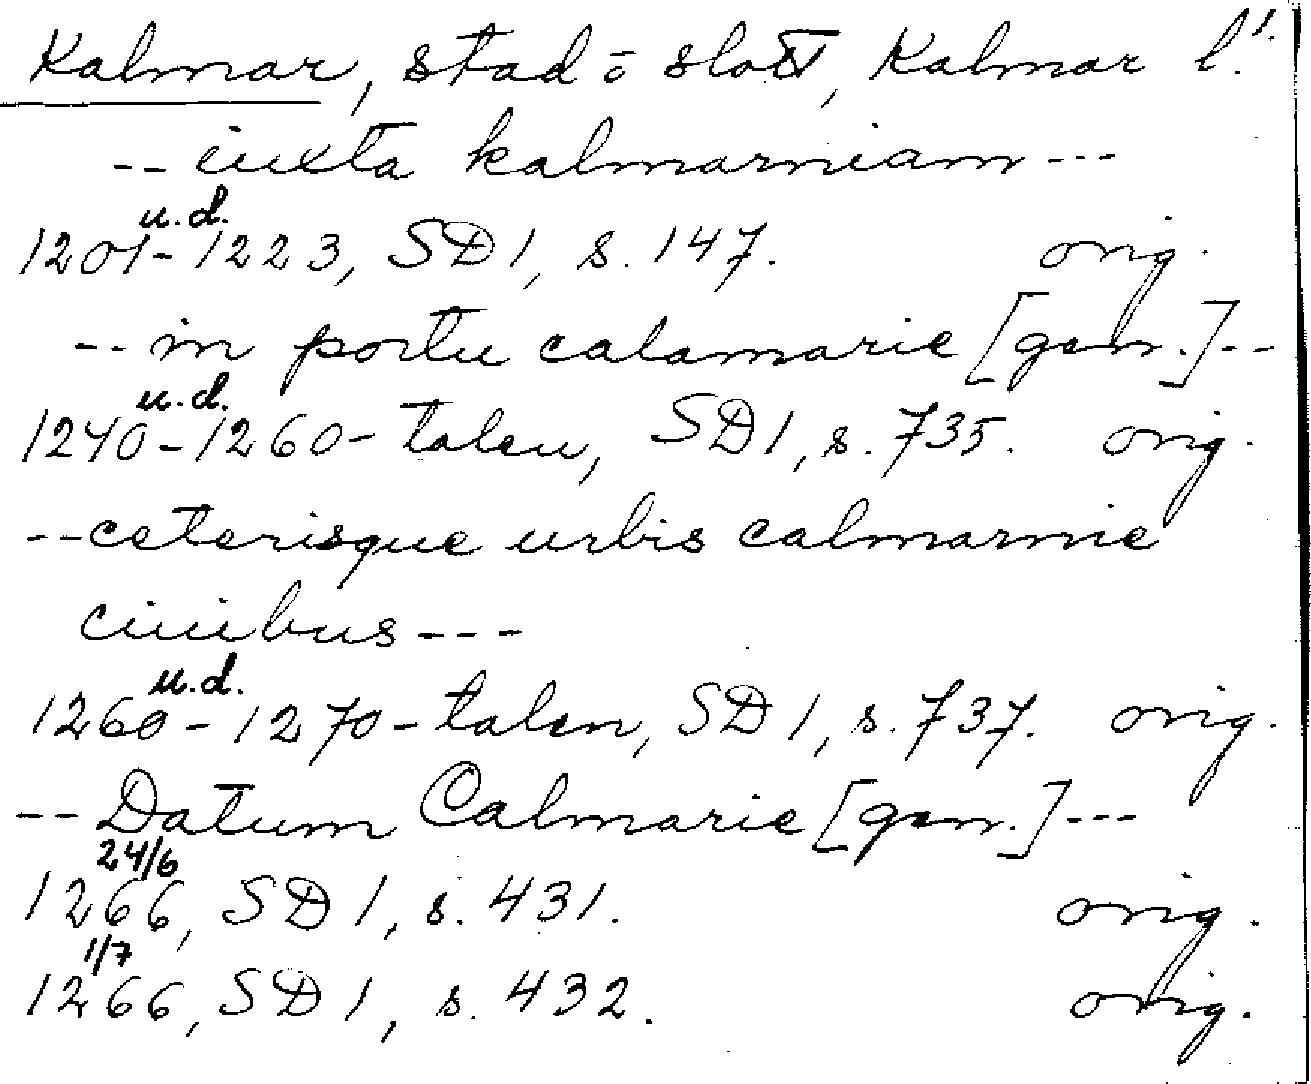 Kalmar, stad o slott, Kalmar l. 1.
-- iuxta kalmarniam ---
u.d.
1201-1223, SD 1, s. 147. orig.
-- in portu calamarie [gen.] --
u.d.
1240-1260-talen, SD 1, s. 735. orig.
-- ceterisque urbis calmarnie
ciuibus ---
u.d.
1260-1270-talen, SD 1, s. 737. orig.
-- Datum Calmarie [gen.] ---
24/6
1266, SD 1, s. 431. orig.
1/7
1266, SD 1, s. 432. orig.